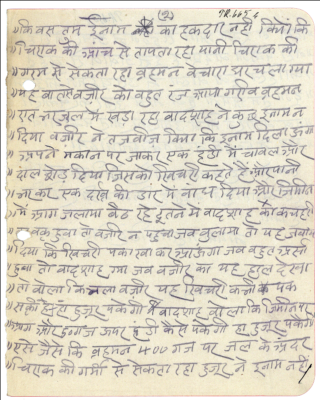 (2) TR.665.4
"कि बस तुम ईनाम का हकदार नहीं क्योंकि
"चिराग की आंच से तापता रहा यानी चिराग की
"गरम से सेकता रहा ब्रहमन बेचारा घर चला गया
"यह बात वज़ीर को बहुत रंज आया गरीब ब्रहमन
"रात जल में खड़ा रहा बादशाह ने कुछ ईनाम न
"दिया वज़ीर ने तजवीज़ किया कि ईनाम दिलाऊंगा
"अपने मकान पर जाकर एक हंडी में चावल और
"दाल छोड़ दिया जिसको खिचरी कहते हैं और यानी
"जाकर एक दरख़्त की डार में बांध दिया और जिमीन
"में आग जलाया बैठ रहे इतने में बादशाह की कचहरी
"वक़्त हुवा तो वज़ीर न पहुंचा जब बुलाया तो यह जवाब
"दिया कि खिचरी पका खा कर आऊंगा जब बहुत अरसा
"हुवा तो बादशाह गया जब वज़ीर का यह हाल देखा
"तो बोला कि वज़ीर यह खिचरी कब तक पक
"सकी कहा हुजूर पकेगी में बादशाह बोला कि जिमीन पर
"आग और गज ऊपर हंडी कैसे पकेगी हां हुजूर पकेगी
"ऐसे जैसे कि ब्रहमन 400 गज पर जल के अंदर
"चिराग की गर्मी से सेकता रहा हुजूर ने ईनाम नहीं